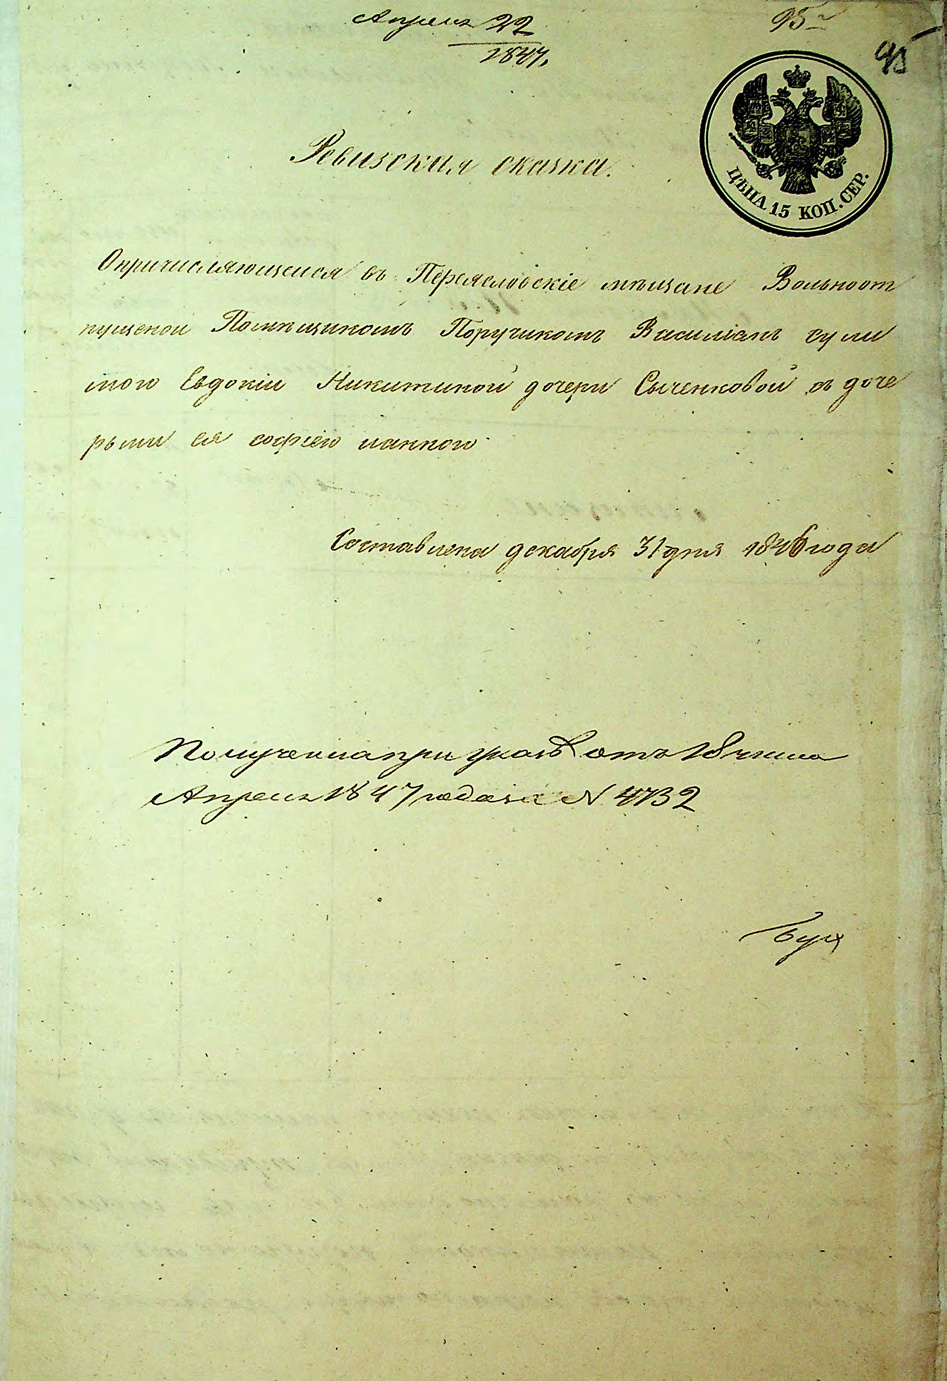 Апреля 22
1847.
95
95
ЦѢНА 15 КОП. СЕР.
Ревизская сказка.
Опричисляющейся въ Переясловскіе мѣщане Вольноот
пущеной Помѣщикомъ Поручикомъ Василіемъ сули
мою Евдокіи Никитиной дочери Сыченковой съ доче
рьми ея софіею ианною
Составлена декабря 31 дня 1846 года
Получена при указѣ отъ 18 числа
Апреля 1847 года за N 4732